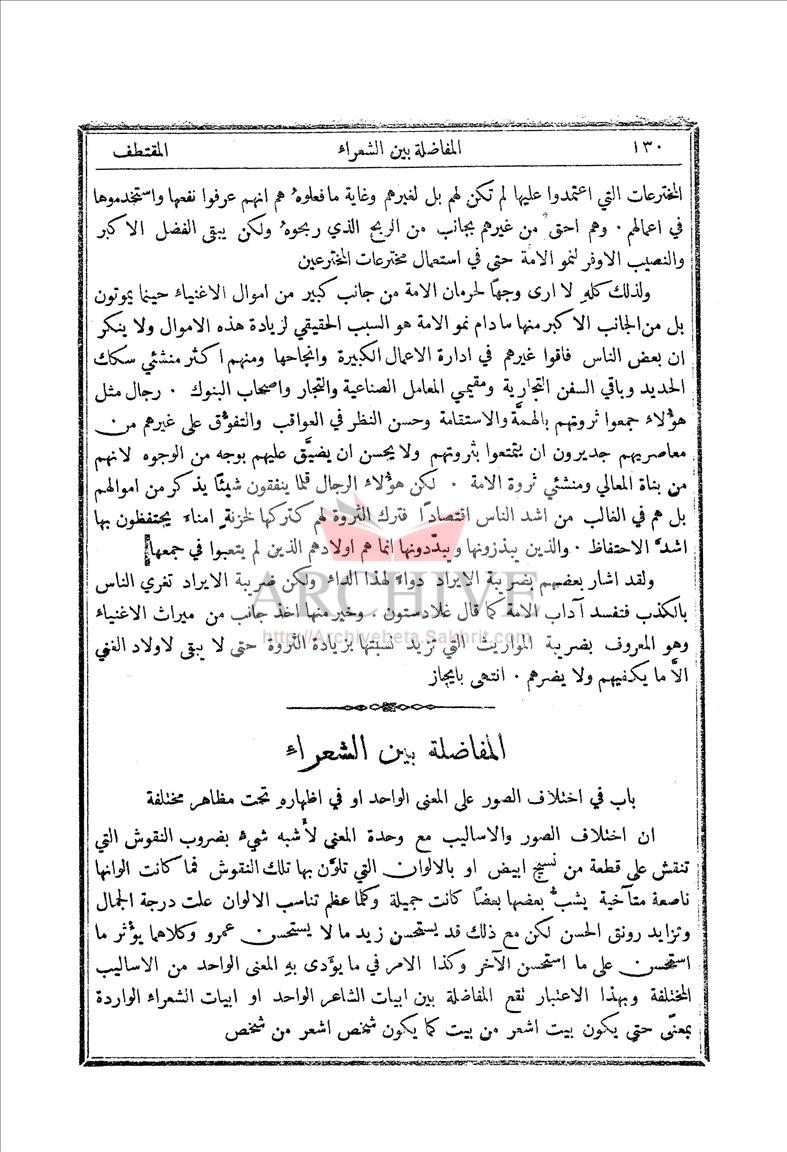 ١٣٠ المفاضلة بين الشعراء المقتطف
المخترعات التي اعتمدوا عليها لم تكن لهم بل لغيرهم وغاية ما فعلوهُ هم انهم عرفوا نفعها واستخدموها
في اعمالهم . وهم احق من غيرهم بجانب من الربح الذي ربحوهُ ولكن يبقى الفضل الاكبر
والنصيب الاوفر لنمو الامة حتى في استعمال مخترعات المخترعين
ولذلك كلهِ لا ارى وجهاً لحرمان الامة من جانب كبير من اموال الاغنياء حينما يموتون
بل من الجانب الاكبر منها ما دام نمو الامة هو السبب الحقيقي لزيادة هذه الاموال ولا ينكر
ان بعض الناس فاقوا غيرهم في ادارة الاعمال الكبيرة وانجاحها ومنهم اكثر منشئي سكك
الحديد وباقي السفن التجارية ومقيمي المعامل الصناعية والتجار واصحاب البنوك . رجال مثل
هؤلاء جمعوا ثروتهم بالهمَّة والاستقامة وحسن النظر في العواقب والتفوُّق على غيرهم من
معاصريهم جديرون ان يتمتعوا بثروتهم ولا يحسن ان يضيَّق عليهم بوجه من الوجوه لانهم
من بناة المعالي ومنشئي ثروة الامة . لكن هؤلاء الرجال قلما ينفقون شيئاً يذكر من اموالهم
بل هم في الغالب من اشد الناس اقتصاداً فترك الثروة لهم كتركها لخزنةٍ امناء يحتفظون بها
اشدَّ الاحتفاظ . والذين يبذرونها ويبدّدونها انما هم اولادهم الذين لم يتعبوا في جمعها
ولقد اشار بعضهم بضريبة الايراد دواءً لهذا الداء ولكن ضريبة الايراد تغري الناس
بالكذب فتفسد آداب الامة كما قال غلادستون . وخير منها اخذ جانب من ميراث الاغنياء
وهو المعروف بضريبة المواريث التي تزيد نسبتها بزيادة الثروة حتى لا يبقى لاولاد الغني
الاَّ ما يكفيهم ولا يضرهم . انتهى بايجاز
المفاضلة بين الشعراء
باب في اختلاف الصور على المعنى الواحد او في اظهارهِ تحت مظاهر مختلفة
ان اختلاف الصور والاساليب مع وحدة المعنى لأَشبه شيءٍ بضروب النقوش التي
تنقش على قطعة من نسيج ابيض او بالالوان التي تلوَّن بها تلك النقوش فما كانت الوانها
ناصعة متآخية يشبُّ بعضها بعضاً كانت جميلة وكلما عظم تناسب الالوان علت درجة الجمال
وتزايد رونق الحسن لكن مع ذلك قد يستحسن زيد ما لا يستحسن عمرو وكلاهما يؤثر ما
استحسن على ما استحسن الآخر وكذا الامر في ما يؤدى بهِ المعنى الواحد من الاساليب
المختلفة وبهذا الاعتبار تقع المفاضلة بين ابيات الشاعر الواحد او ابيات الشعراء الواردة
بمعنًى حتى يكون بيت اشعر من بيت كما يكون شخص اشعر من شخص
ARCHIVE
http://Archivebeta.Sakhrit.com